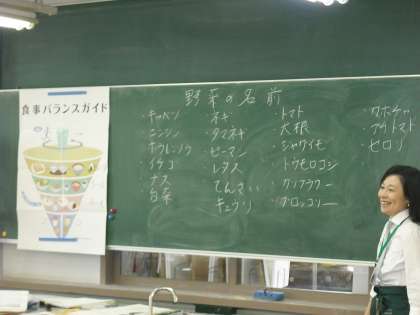 食事バランスガイド
野菜の名前
・キャベツ
・ニンジン
・ホウレンソウ
・イチゴ
・ナス
・白菜
・ネギ
・タマネギ
・ピーマン
・レタス
・てんさい
・キュウリ
・トマト
・大根
・ジャガイモ
・トウモロコシ
・カリフラワー
・ブロッコリー
・カボチャ
・プチトマト
・セロリ